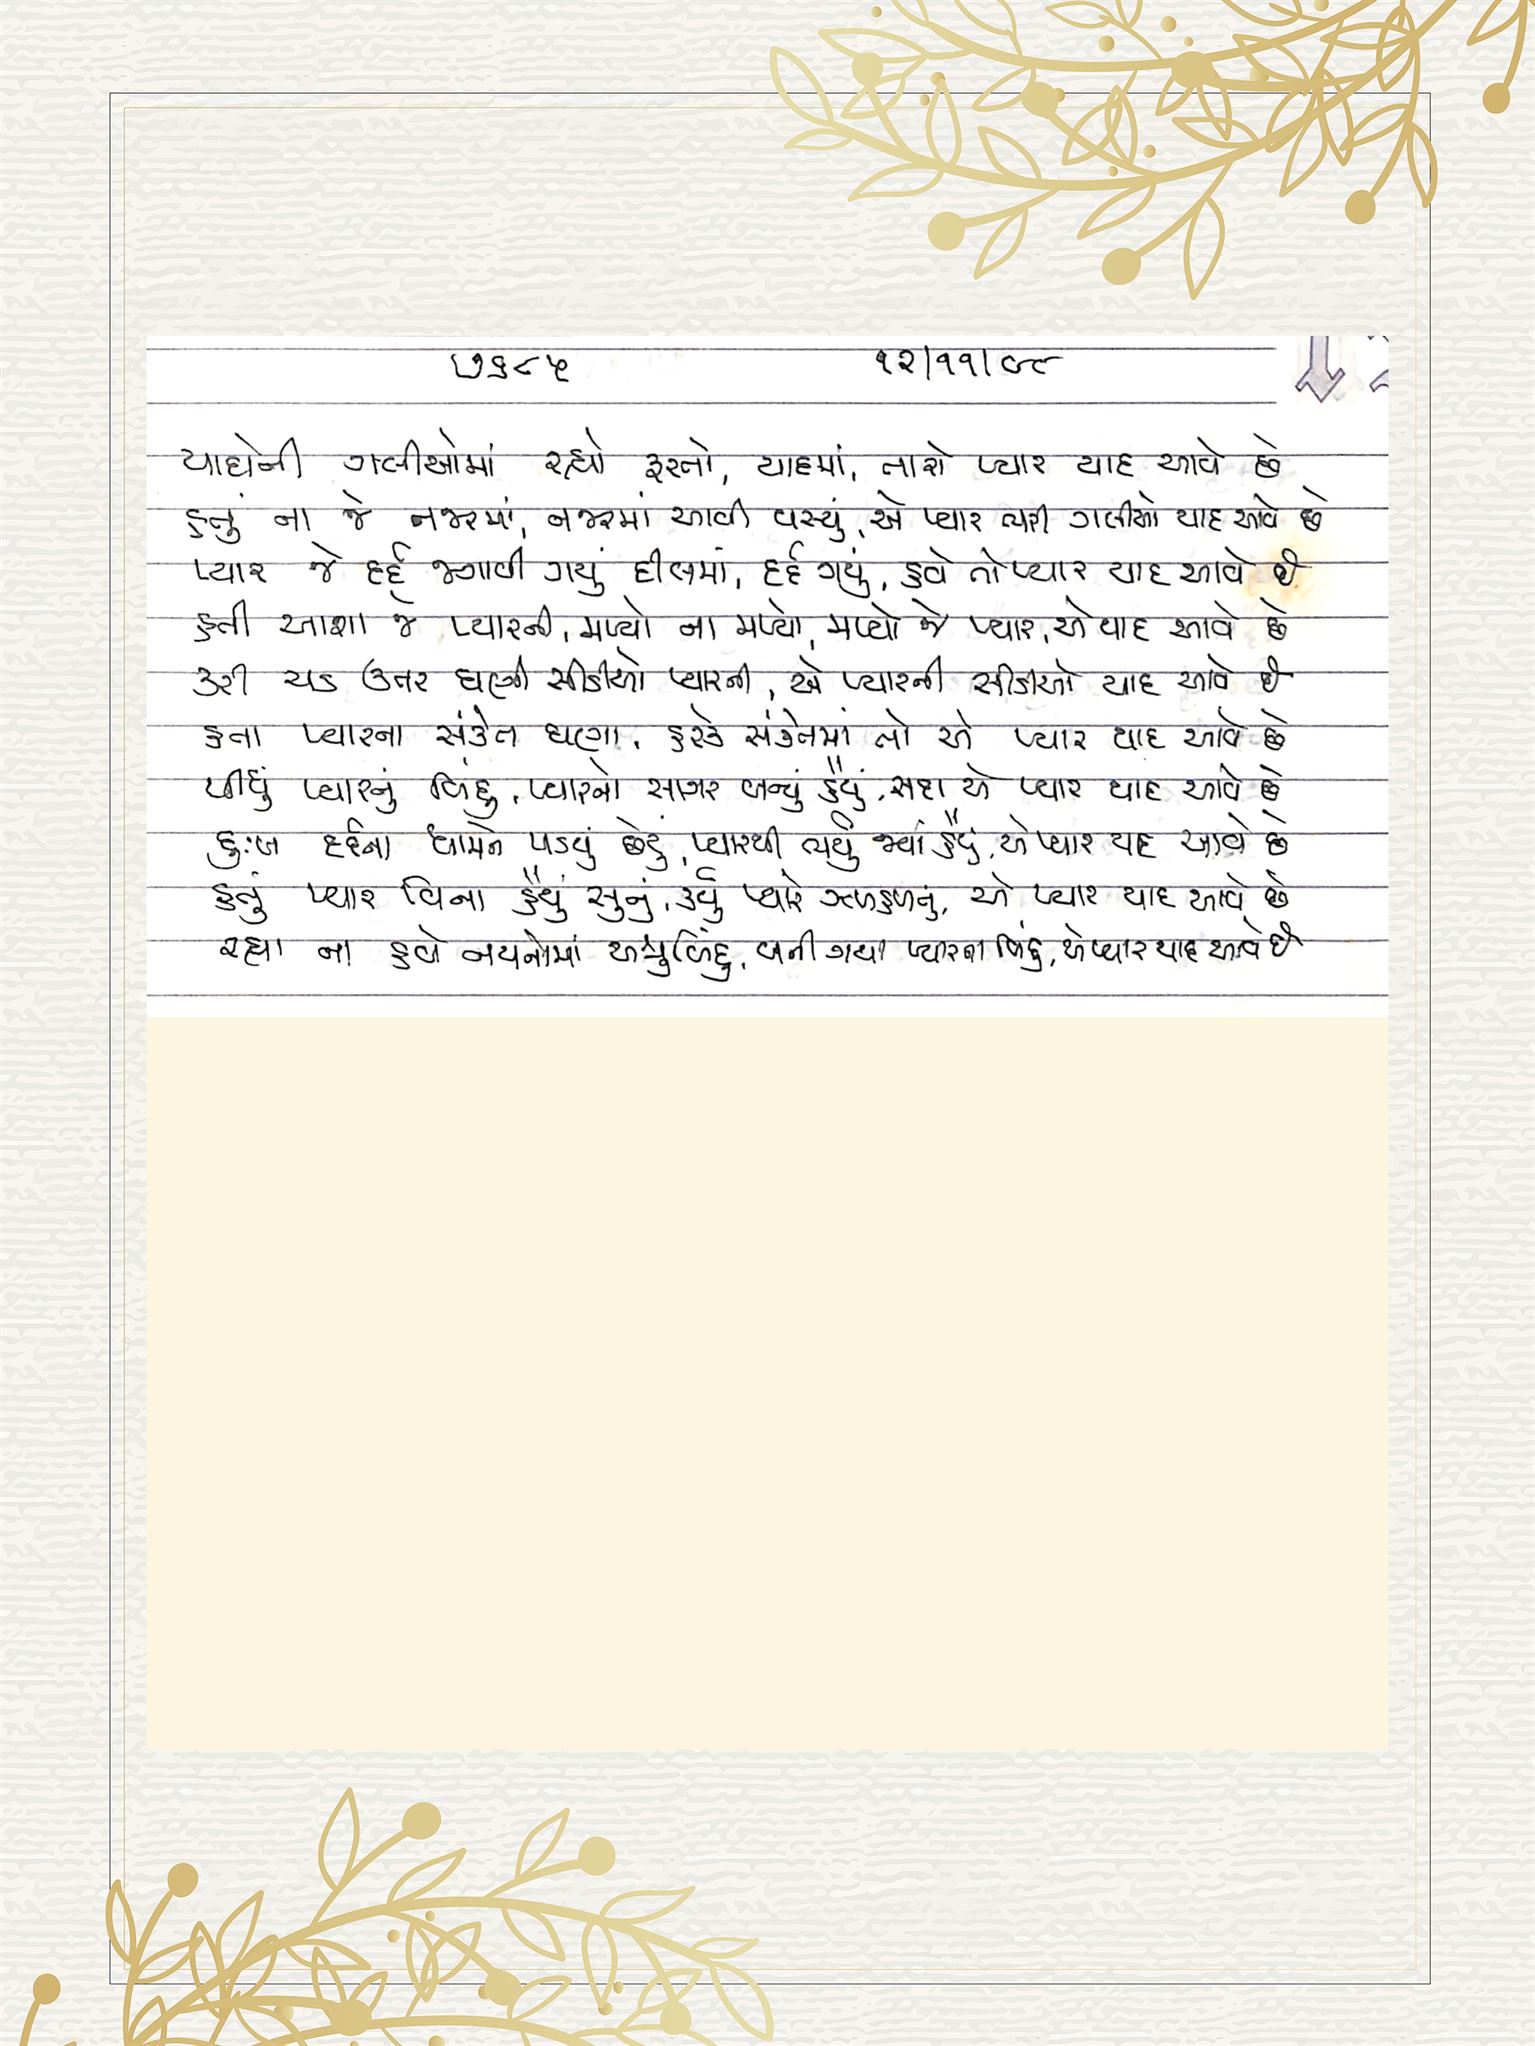 ૭૬૮૫ ૧૨/૧૧/૯૮
યાદોની ગલીઓમાં રહ્યો ફરતો, યાદમાં, તારો પ્યાર યાદ આવે છે
હતું ના જે નજરમાં, નજરમાં આવી વસ્યું, એ પ્યાર ભરી ગલીઓ યાદ આવે છે
પ્યાર જે દર્દ જગાવી ગયું દીલમાં, દર્દ ગયું, હવે તો પ્યાર યાદ આવે છે
હતી આશા જે પ્યારની, મળ્યો ના મળ્યો, મળ્યો જે પ્યાર, એ યાદ આવે છે
કરી ચડ ઉતર ઘણી સીડીઓ પ્યારની, એ પ્યારની સીડીઓ યાદ આવે છે
હતા પ્યારના સંકેત ઘણા, હરેક સંકેતમાં તો એ પ્યાર યાદ આવે છે
પીધું પ્યારનું બિંદુ, પ્યારનો સાગર બન્યું હૈયું, સદા એ પ્યાર યાદ આવે છે
દુઃખ દર્દના ધામને પડયું છેટું, પ્યારથી ભર્યું જ્યાં હૈયું, એ પ્યાર યાદ આવે છે
હતું પ્યાર વિના હૈયું સુનું, કર્યું પ્યારે ઝળહળતું, એ પ્યાર યાદ આવે છે
રહ્યા ના હવે નયનોમાં અશ્રુબિંદુ, બની ગયા પ્યારના બિંદુ, એ પ્યાર યાદ આવે છે